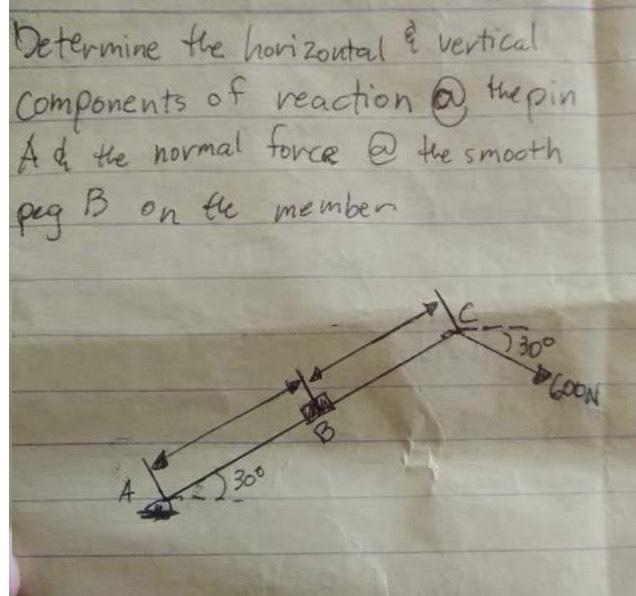 Determine the horizontal & vertical
components of reaction @ the pin
A & the normal force @ the smooth
peg B on the member
C
30°
600N
B
A
30°